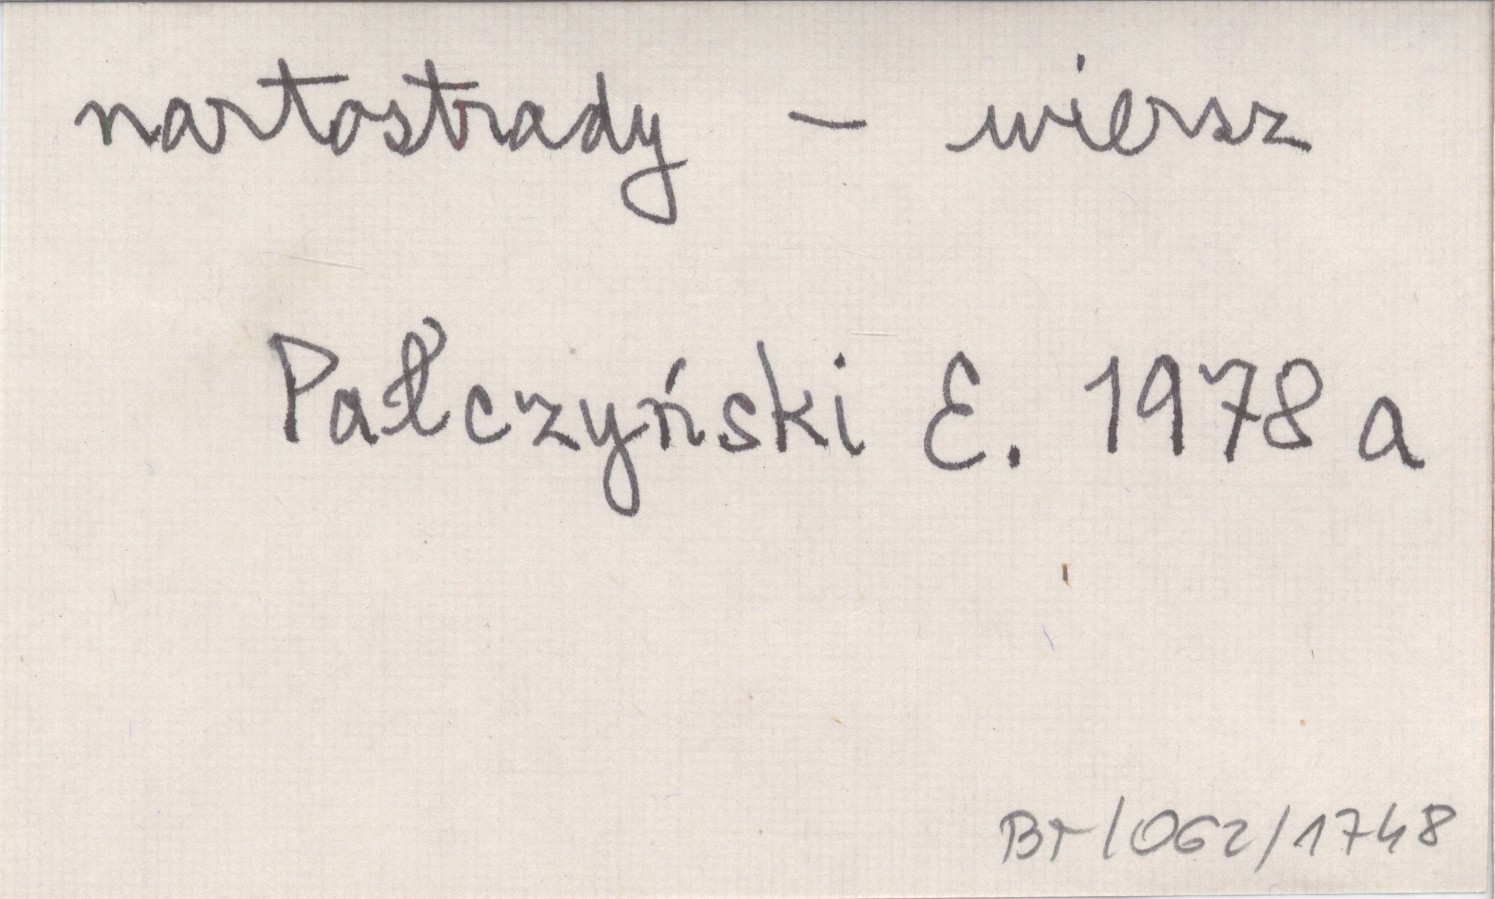 nartostrady – wiersz
Pałczyński E. 1978 a
BT/062/1748